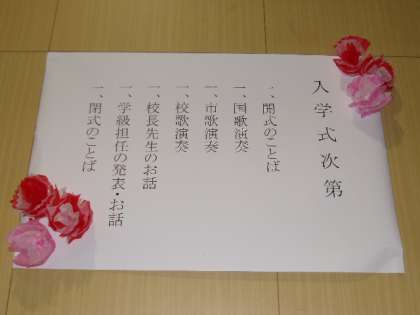 入学式次第
一、開式のことば
一、国歌演奏
一、市歌演奏
一、校歌演奏
一、校長先生のお話
一、学級担任の発表・お話
一、閉式のことば